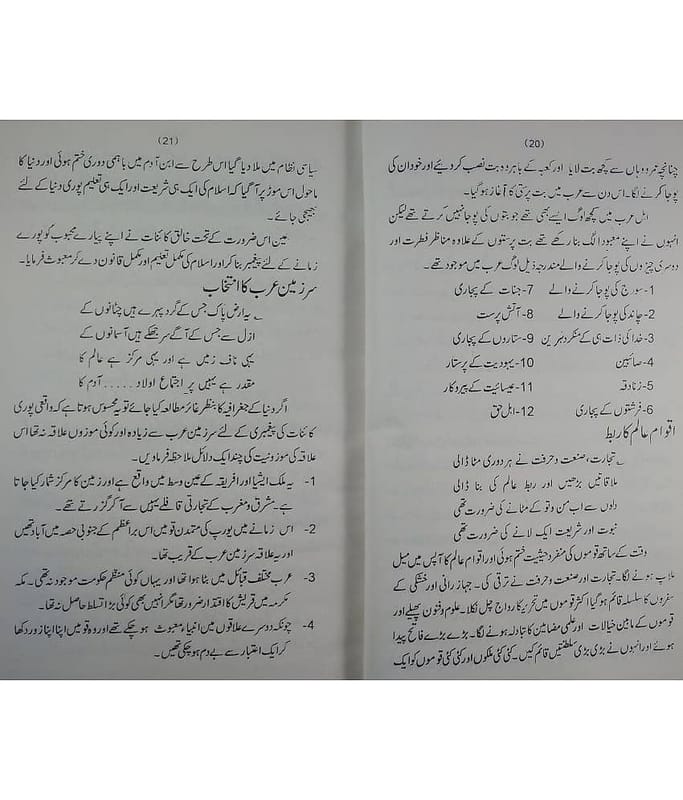 (20)
چنانچہ نمرود وہاں سے کچھ بت لایا اور کعبہ کے باہر وہ بت نصب کر دیئے اور خود ان کی
پوجا کرنے لگا۔ اس دن سے عرب میں بت پرستی کا آغاز ہو گیا۔
اہل عرب میں کچھ لوگ ایسے بھی تھے جو بتوں کی پوجا نہیں کرتے تھے لیکن
انہوں نے اپنے معبود الگ بنا رکھے تھے بت پرستوں کے علاوہ مناظر فطرت اور
دوسری چیزوں کی پوجا کرنے والے مندرجہ ذیل لوگ عرب میں موجود تھے۔
1- سورج کی پوجا کرنے والے 7- جنات کے پجاری
2- چاند کی پوجا کرنے والے 8- آتش پرست
3- خدا کی ذات ہی کے منکر دہرین 9- ستاروں کے پجاری
4- صابئین 10- یہودیت کے پرستار
5- زنادقہ 11- عیسائیت کے پیروکار
6- فرشتوں کے پجاری 12- اہل حق
اقوام عالم کا ربط
تجارت، صنعت و حرفت نے ہر دوری مٹا ڈالی
ملاقاتیں بڑھیں اور ربط عالم کی بنا ڈالی
دلوں سے اب من و تو کے مٹانے کی ضرورت تھی
نبوت اور شریعت ایک لانے کی ضرورت تھی
وقت کے ساتھ قوموں کی منفرد حیثیت ختم ہوئی اور اقوام عالم کا آپس میں میل
ملاپ ہونے لگا۔ تجارت اور صنعت و حرفت نے ترقی کی۔ جہاز رانی اور خشکی کے
سفروں کا سلسلہ قائم ہو گیا اکثر قوموں میں تحریر کا رواج چل نکلا۔ علوم و فنون پھیلے اور
قوموں کے مابین خیالات اور علمی مضامین کا تبادلہ ہونے لگا۔ بڑے بڑے فاتح پیدا
ہوئے اور انہوں نے بڑی بڑی سلطنتیں قائم کیں۔ کئی کئی ملکوں اور کئی کئی قوموں کو ایک
(21)
سیاسی نظام میں ملا دیا گیا اس طرح سے ابن آدم میں باہمی دوری ختم ہوئی اور دنیا کا
ماحول اس موڑ پر آ گیا کہ اسلام کی ایک ہی شریعت اور ایک ہی تعلیم پوری دنیا کے لئے
بھیجی جائے۔
عین اس ضرورت کے تحت خالق کائنات نے اپنے پیارے محبوب کو پورے
زمانے کے لئے پیغمبر بنا کر اور اسلام کی مکمل تعلیم اور مکمل قانون دے کر مبعوث فرمایا۔
سر زمین عرب کا انتخاب
یہ ارض پاک جس کے گرد پہرے ہیں چٹانوں کے
ازل سے جس کے آگے سر جھکے ہیں آسمانوں کے
یہی ناف زمیں ہے اور یہی مرکز ہے عالم کا
مقدر ہے یہیں پر اجتماع اولاد ..... آدم کا
اگر دنیا کے جغرافیہ کا بنظر غائر مطالعہ کیا جائے تو یہ محسوس ہوتا ہے کہ واقعی پوری
کائنات کی پیغمبری کے لئے سر زمین عرب سے زیادہ اور کوئی موزوں علاقہ نہ تھا اس
علاقہ کی موزونیت کی چند ایک دلائل ملاحظہ فرماویں۔
1- یہ ملک ایشیا اور افریقہ کے عین وسط میں واقع ہے اور زمین کا مرکز شمار کیا جاتا
ہے۔ مشرق و مغرب کے تجارتی قافلے یہیں سے آ کر گزرتے تھے۔
2- اس زمانے میں یورپ کی متمدن قومیں اس براعظم کے جنوبی حصہ میں آباد تھیں
اور یہ علاقہ سر زمین عرب کے قریب تھا۔
3- عرب مختلف قبائل میں بٹا ہوا تھا اور یہاں کوئی منظم حکومت موجود نہ تھی۔ مکہ
مکرمہ میں قریش کا اقتدار ضرور تھا مگر انہیں بھی کوئی بڑا تسلط حاصل نہ تھا۔
4- چونکہ دوسرے علاقوں میں انبیاء مبعوث ہو چکے تھے اور وہ قومیں اپنا اپنا زور دکھا
کر ایک اعتبار سے بے دم ہو چکی تھیں۔